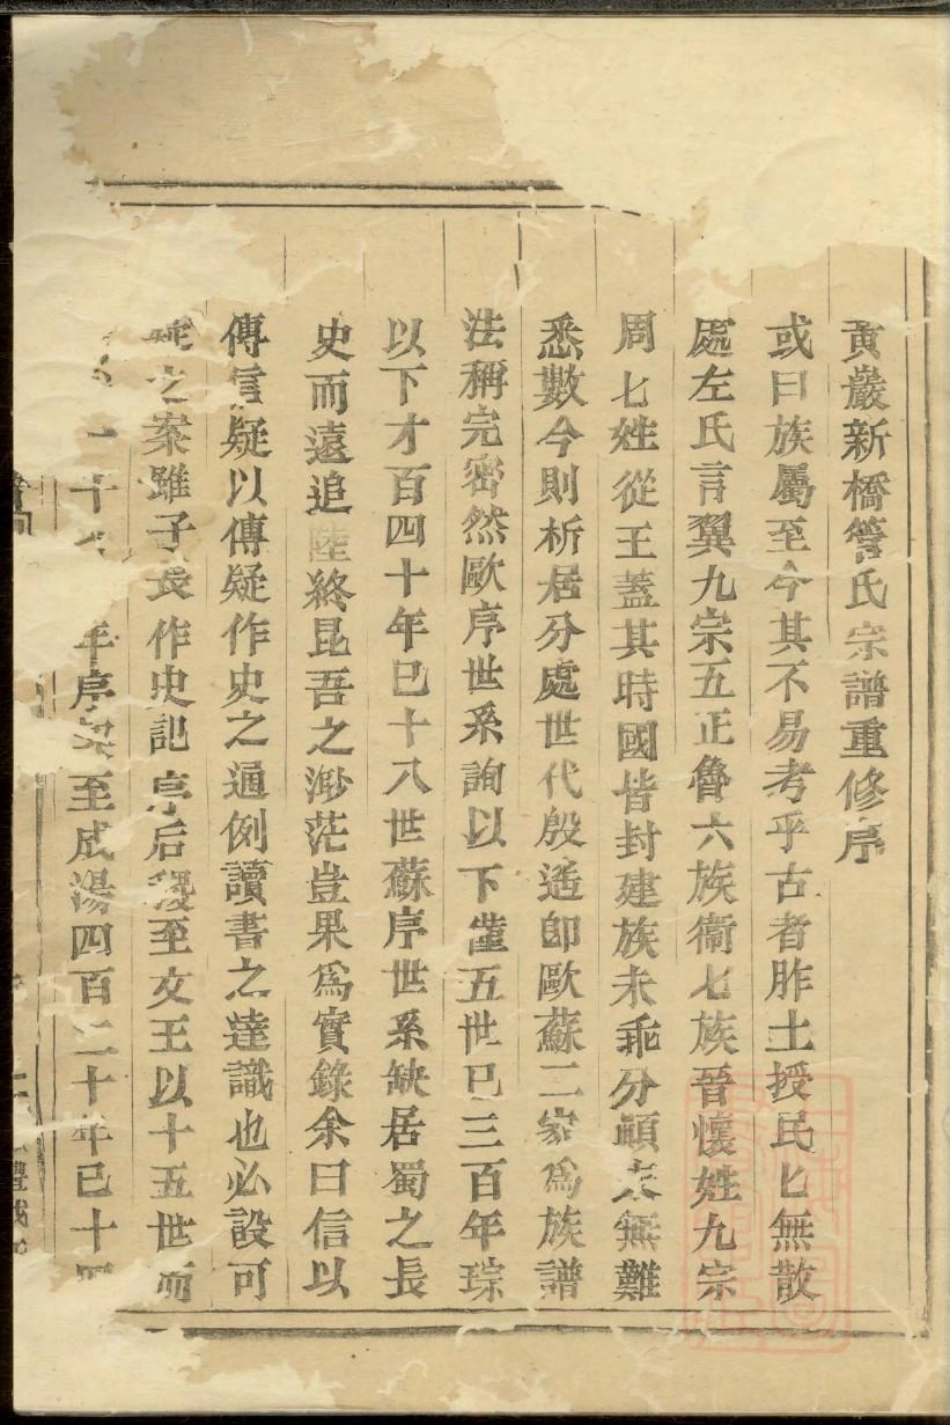 黃巖新橋管氏宗譜重修序
或曰族屬至今其不易考乎古者胙土授民匕無散
處左氏言翼九宗五正魯六族衞七族晉懷姓九宗
周七姓從王蓋其時國皆封建族未乖分顧未無難
悉數今則析居分處世代殷遙卽歐蘇二家爲族譜
法稱完密然歐序世系詢以下僅五世已三百年琮
以下才百四十年已十八世蘇序世系缺居蜀之長
史而遠追陸終昆吾之渺茫豈果爲實錄余曰信以
傳信疑以傳疑作史之通例讀書之達識也必設可
之案雖子長作史記序后稷至文王以十五世而
十年序契至成湯四百二十年已十四